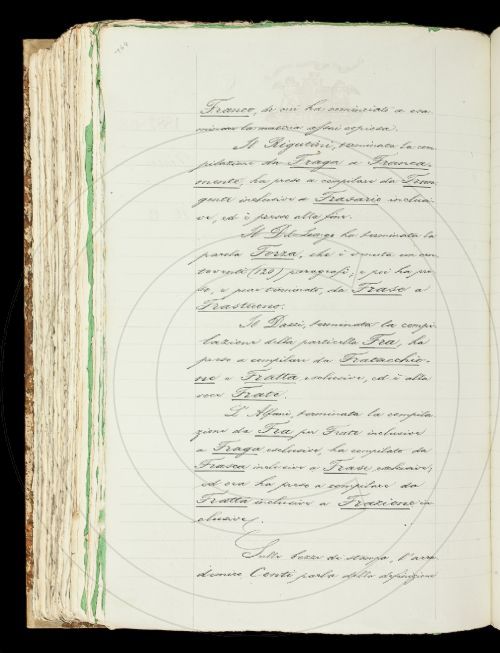 Franco, di cui ha cominciato a esa-
minare la materia assai copiosa.
Il Rigutini, terminata la com-
pilazione da Fraga a Franca-
mente, ha preso a compilare da Fran-
gente inclusive a Frasario inclusi-
ve, ed è presso alla fine.
Il Del Lungo ha terminata la
parola Forza, che è venuta un cen-
toventi (120) paragrafi; e poi ha pre-
so, e pur terminato, da Frase a
Frastuono.
Il Dazzi, terminata la compi-
lazione della particella Fra, ha
preso a compilare da Fratacchio-
ne a Fratta esclusive, ed è alla
voce Frate.
L'Alfani, terminata la compila-
zione da Fra per Frate inclusive
a Fraga esclusive, ha compilato da
Frasca inclusive a Frase esclusive;
ed ora ha preso a compilare da
Fratta inclusive a Frazione in-
clusive.
Sulle bozze di stampa, l'acca-
demico Conti parla della definizione